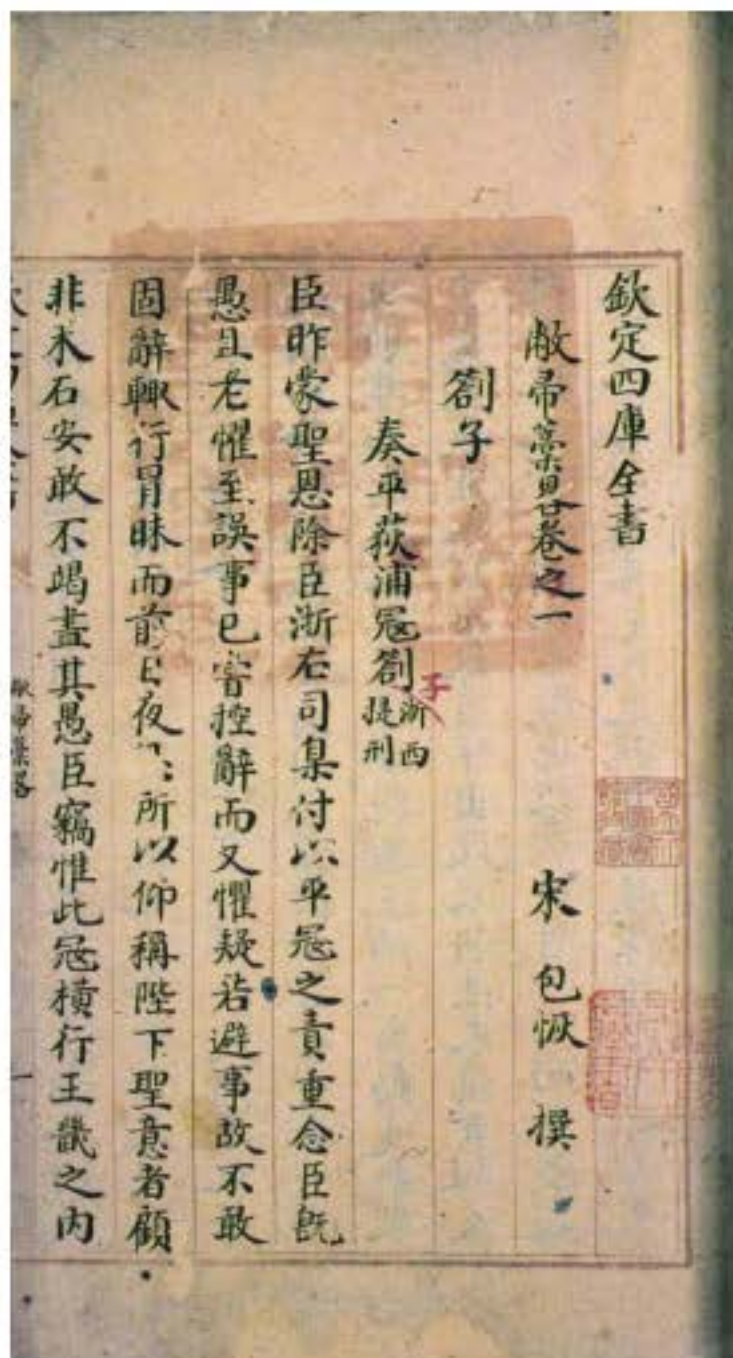 欽定四庫全書
敝帚藳畧卷之一
宋 包恢 撰
劄子
奏平荻浦寇劄子浙西提刑
臣昨蒙聖恩除臣浙右司臬付以平寇之責重念臣既
愚且老懼至誤事已嘗控辭而又懼疑若避事故不敢
固辭輒行冒昧而前日夜 所以仰稱陛下聖意者顧
非木石安敢不竭盡其愚臣竊惟此寇橫行王畿之內
敝帚藳畧
一